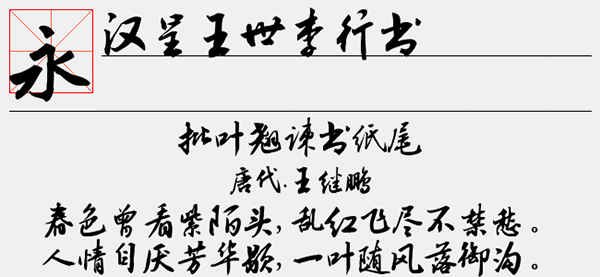 永
汉呈王世李行书
批叶翘谏书纸尾
唐代.王继鹏
春色曾看紫陌头,乱红飞尽不禁愁。
人情自厌芳华歇,一叶随风落御沟。